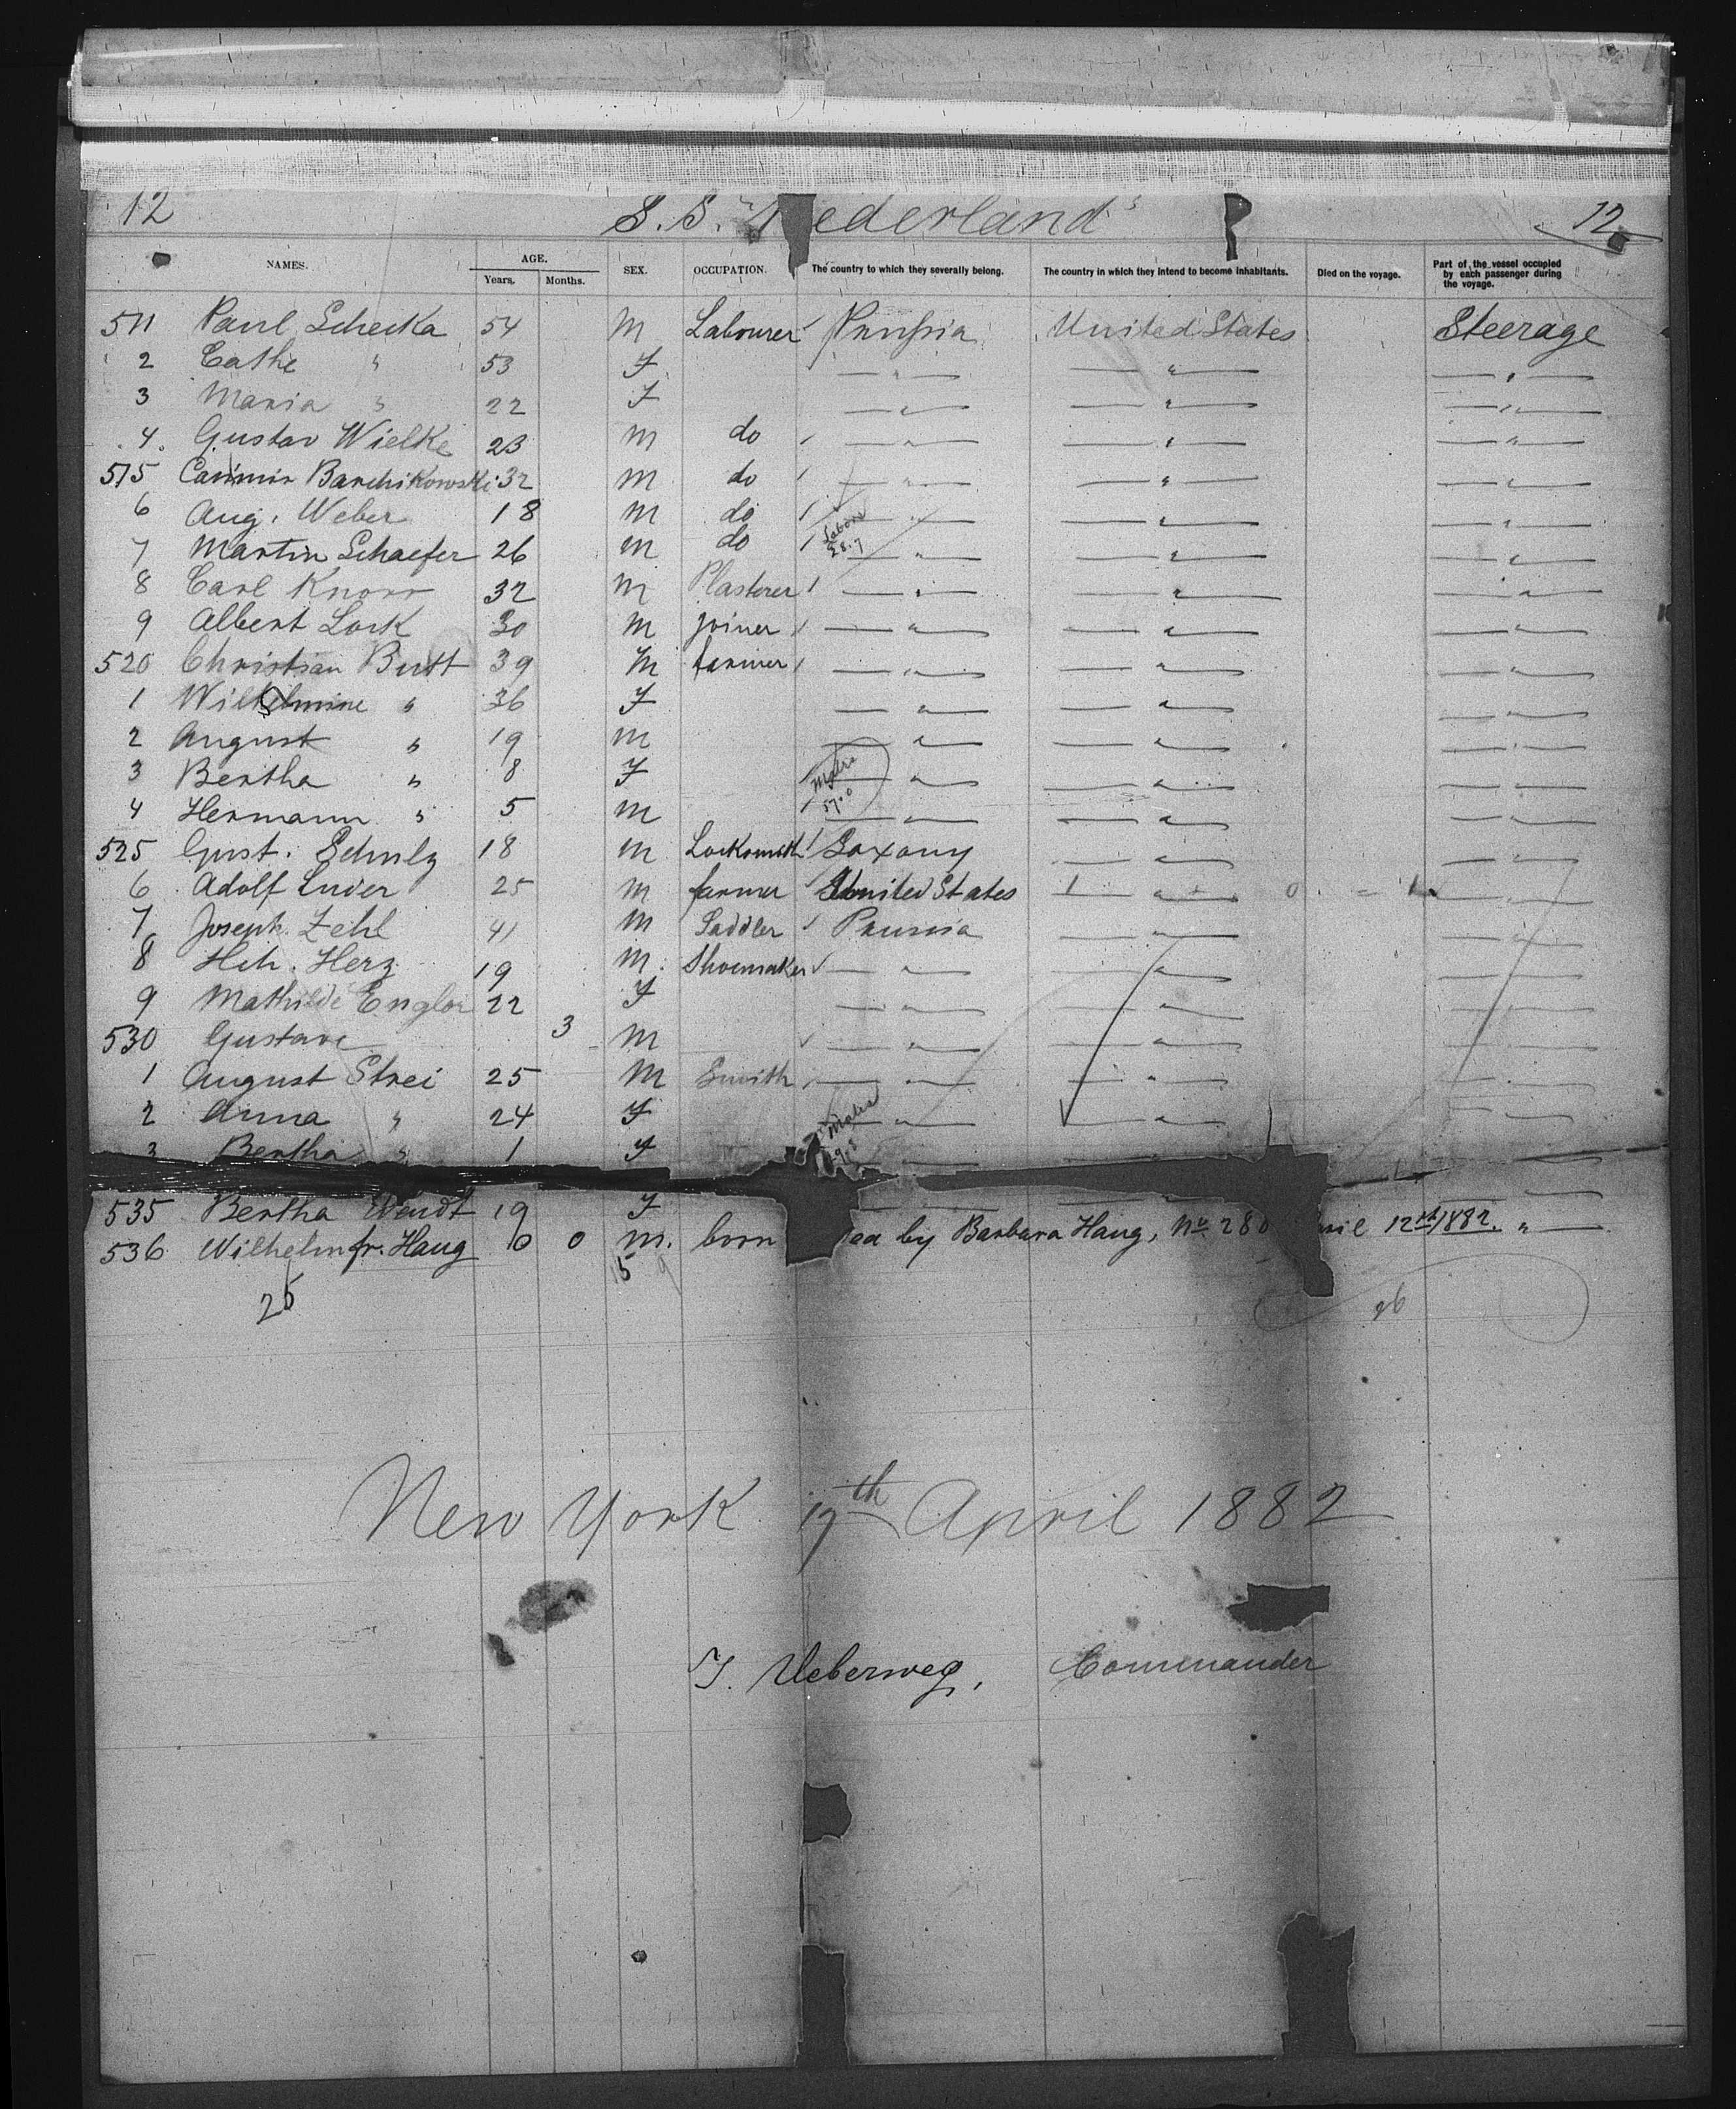 12 S.S. "Nederland" 12
NAMES. AGE. Years. Months. SEX. OCCUPATION. The country to which they severally belong. The country in which they intend to become inhabitants. Died on the voyage. Part of the vessel occupied by each passenger during the voyage.
511 Paul Scheika 54 M Labourer Prussia United States Steerage
2 Cathe " 53 F " " "
3 Maria " 22 F " " "
4. Gustav Wielke 23 M do " " "
515 Casimir Barchikowski 32 M do " " "
6 Aug. Weber 18 M do " " "
7 Martin Schaefer 26 M do " " "
8 Carl Knorr 32 M Plasterer " " "
9 Albert Lock 30 M joiner " " "
520 Christian Butt 39 M farmer " " "
1 Wilhelmine " 36 F " " "
2 August " 19 M " " "
3 Bertha " 8 F " " "
4 Hermann " 5 M " " "
525 Gust. Schulz 18 M Locksmith Saxony " "
6 Adolf 25 M farmer United States " "
7 Joseph Zehl 41 M Saddler Prussia " "
8 Hch. Herz 19 M Shoemaker " " "
9 Mathilde Engler 22 F " " "
530 Gustave 3 M " " "
1 August Strei 25 M Smith " " "
2 Anna " 24 F " " "
3 Bertha " 1 F
535 Bertha Wendt 19 F
536 Wilhelm fr. Haug 0 0 M. born by Barbara Haug, No. 280 12th/1882. "
25
26
New York 17th April 1882
Ueberweg, Commander